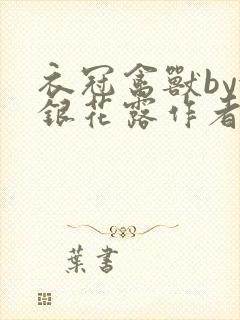 衣冠禽獸by
銀花露作者
葉書